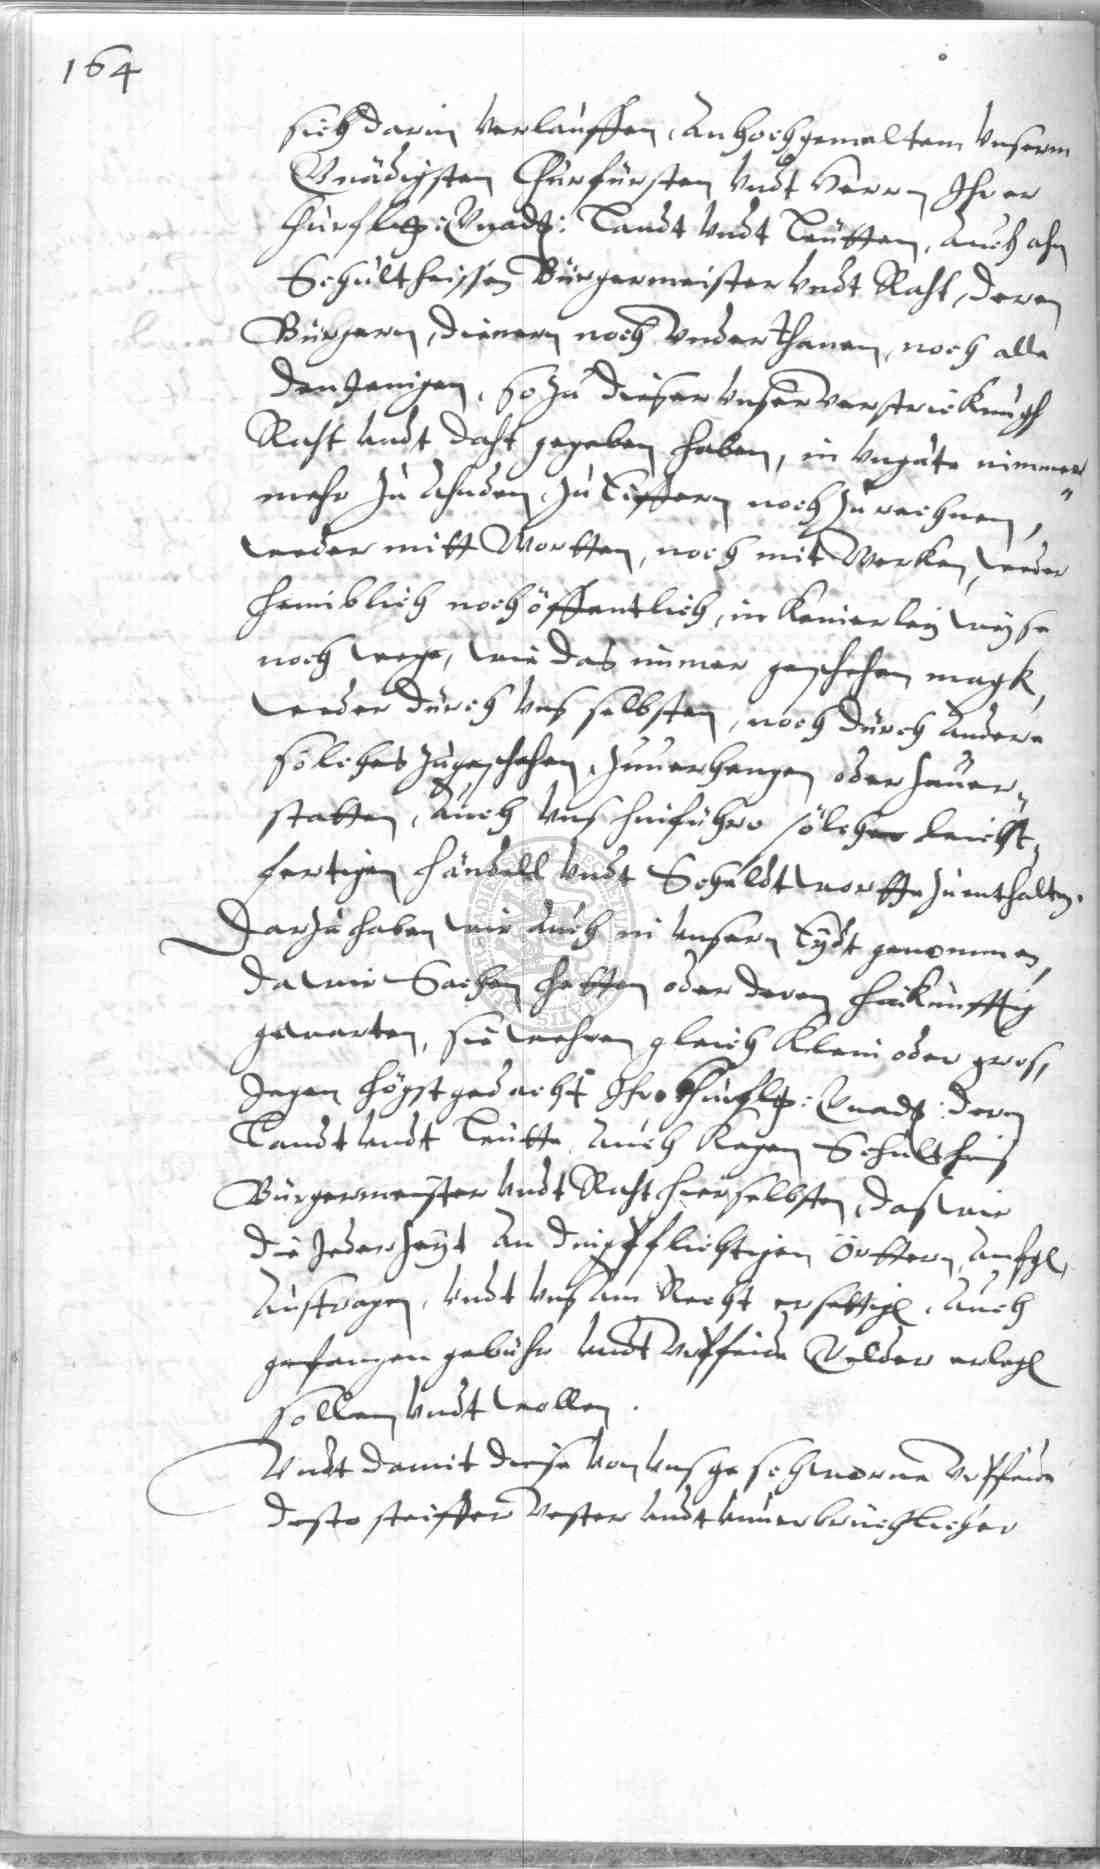 164
sich darin verlauffen, An hochgemeltem Vnserm
Gnädigsten Churfürsten vndt Herrn Ihrer
Churfl: Gnad: Landt vndt Leütten, auch ahn
Schultheissen Bürgermeister vndt Raht, deren
Bürgern, dienern noch Vnderthanen, noch alle
denJenigen, so zu dieser Vnser verstrickungh
Raht vndt Daht gegeben haben, in vngute nimmer„
mehr zu Ahnden, zu Eiffern noch zu rechnen,
weder mitt Wortten, noch mit Werken, weder
heimblich noch öffentlich, in keinerleij weyse
noch wege, wie das immer geschehen magk,
weder durch Vns selbsten, noch durch Andere
solches zugeschehen, zuuerhengen oder zuuer„
statten, Auch Vns hinführo solcher leicht„
fertigen händell vndt Scheldtwortte zu enthalten.
Darzu haben wir Auch in Vnsern Eydt genommen,
da wir Sachen hetten oder deren hinkünfftig
gewarten, sie wehren gleich klein oder gros,
Jegen högstgedacht Ihre Churfl: Gnad: dern
Landt vndt Leutte, Auch kegen Schultheis
Bürgermeister vndt Raht hierselbsten, das wir
die Jederzeyt An dingpflichtigen örttern,
Austragen, vndt Vns Am Recht ersettigen, Auch
gefangen gebühr vndt Vrpfeide Gelder erlegen
sollen vndt wollen.
Vndt damit diese von Vns geschworne Vrpfeide
desto steiffer Vester vndt vnuerbrüchlicher